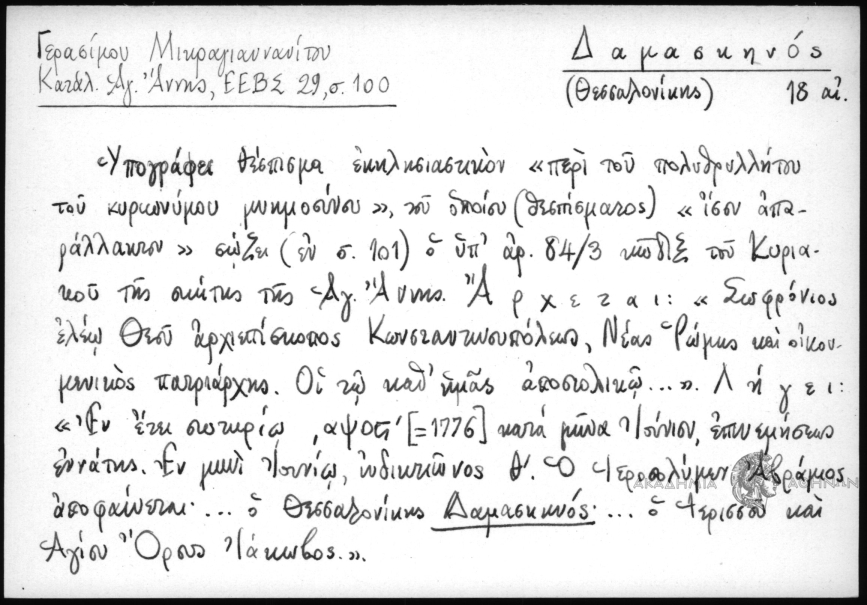 Γερασίμου Μικραγιαννανίτου
Κατάλ. Ἁγ. Ἄννης, ΕΕΒΣ 29, σ. 100
Δαμασκηνός
(Θεσσαλονίκης) 18 αἰ.
Ὑπογράφει θέσπισμα ἐκκλησιαστικὸν «περὶ τοῦ πολυθρυλλήτου
τοῦ κυριωνύμου μνημοσύνου», τοῦ ὁποίου (θεσπίσματος) «ἴσον ἀπα-
ράλλακτον» σῴζει (ἐν σ. 101) ὁ ὑπ' ἀρ. 84/3 κῶδιξ τοῦ Κυρια-
κοῦ τῆς σκήτης τῆς Ἁγ. Ἄννης. Ἄρχεται: «Σωφρόνιος
ἐλέῳ Θεοῦ ἀρχιεπίσκοπος Κωνσταντινουπόλεως, Νέας Ῥώμης καὶ οἰκου-
μενικὸς πατριάρχης. Οἱ τῷ καθ' ἡμᾶς ἀποστολικῷ...». Λήγει:
«Ἐν ἔτει σωτηρίῳ ͵αψοϛ' [=1776] κατὰ μῆνα Ἰούνιον, ἐπινεμήσεως
ἐννάτης. Ἐν μηνὶ Ἰουνίῳ, ἰνδικτιῶνος θ'. Ὁ Ἱεροσολύμων Ἀβράμιος
ἀποφαίνεται· ... ὁ Θεσσαλονίκης Δαμασκηνός· ... ὁ Ἱερισσοῦ καὶ
Ἁγίου Ὄρους Ἰάκωβος.».
ΑΚΑΔΗΜΙΑ ΑΘΗΝΩΝ